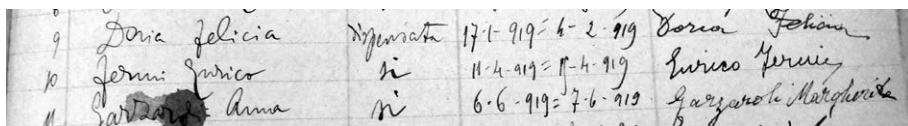 9 Doria Felicia dispensata 17-1-919= 4-2-919 Doria Felicia
10 Fermi Enrico si 11-4-919= 11-4-919 Enrico Fermi
11 Garzaroli Anna si 6-6-919= 7-6-919 Garzaroli Margherita